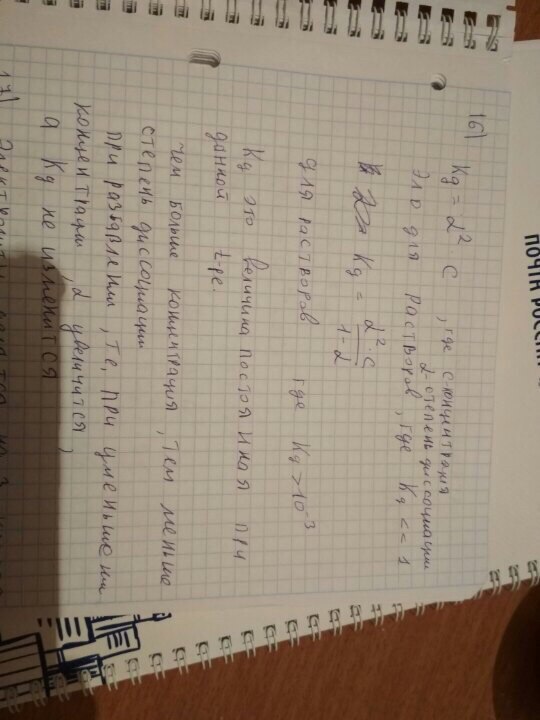 16) Kд = α² · C, где C-концентрация
α-степень диссоциации
это для растворов, где Kд << 1
Kд = α²·C
1-α
для растворов где Kд > 10⁻³
Kд это величина постоянная при
данной t-ре.
чем больше концентрация, тем меньше
степень диссоциации
при разбавлении, т.е. при уменьшении
концентрации, α увеличится,
а Kд не изменится
17)
ПОЧТА РОССИИ